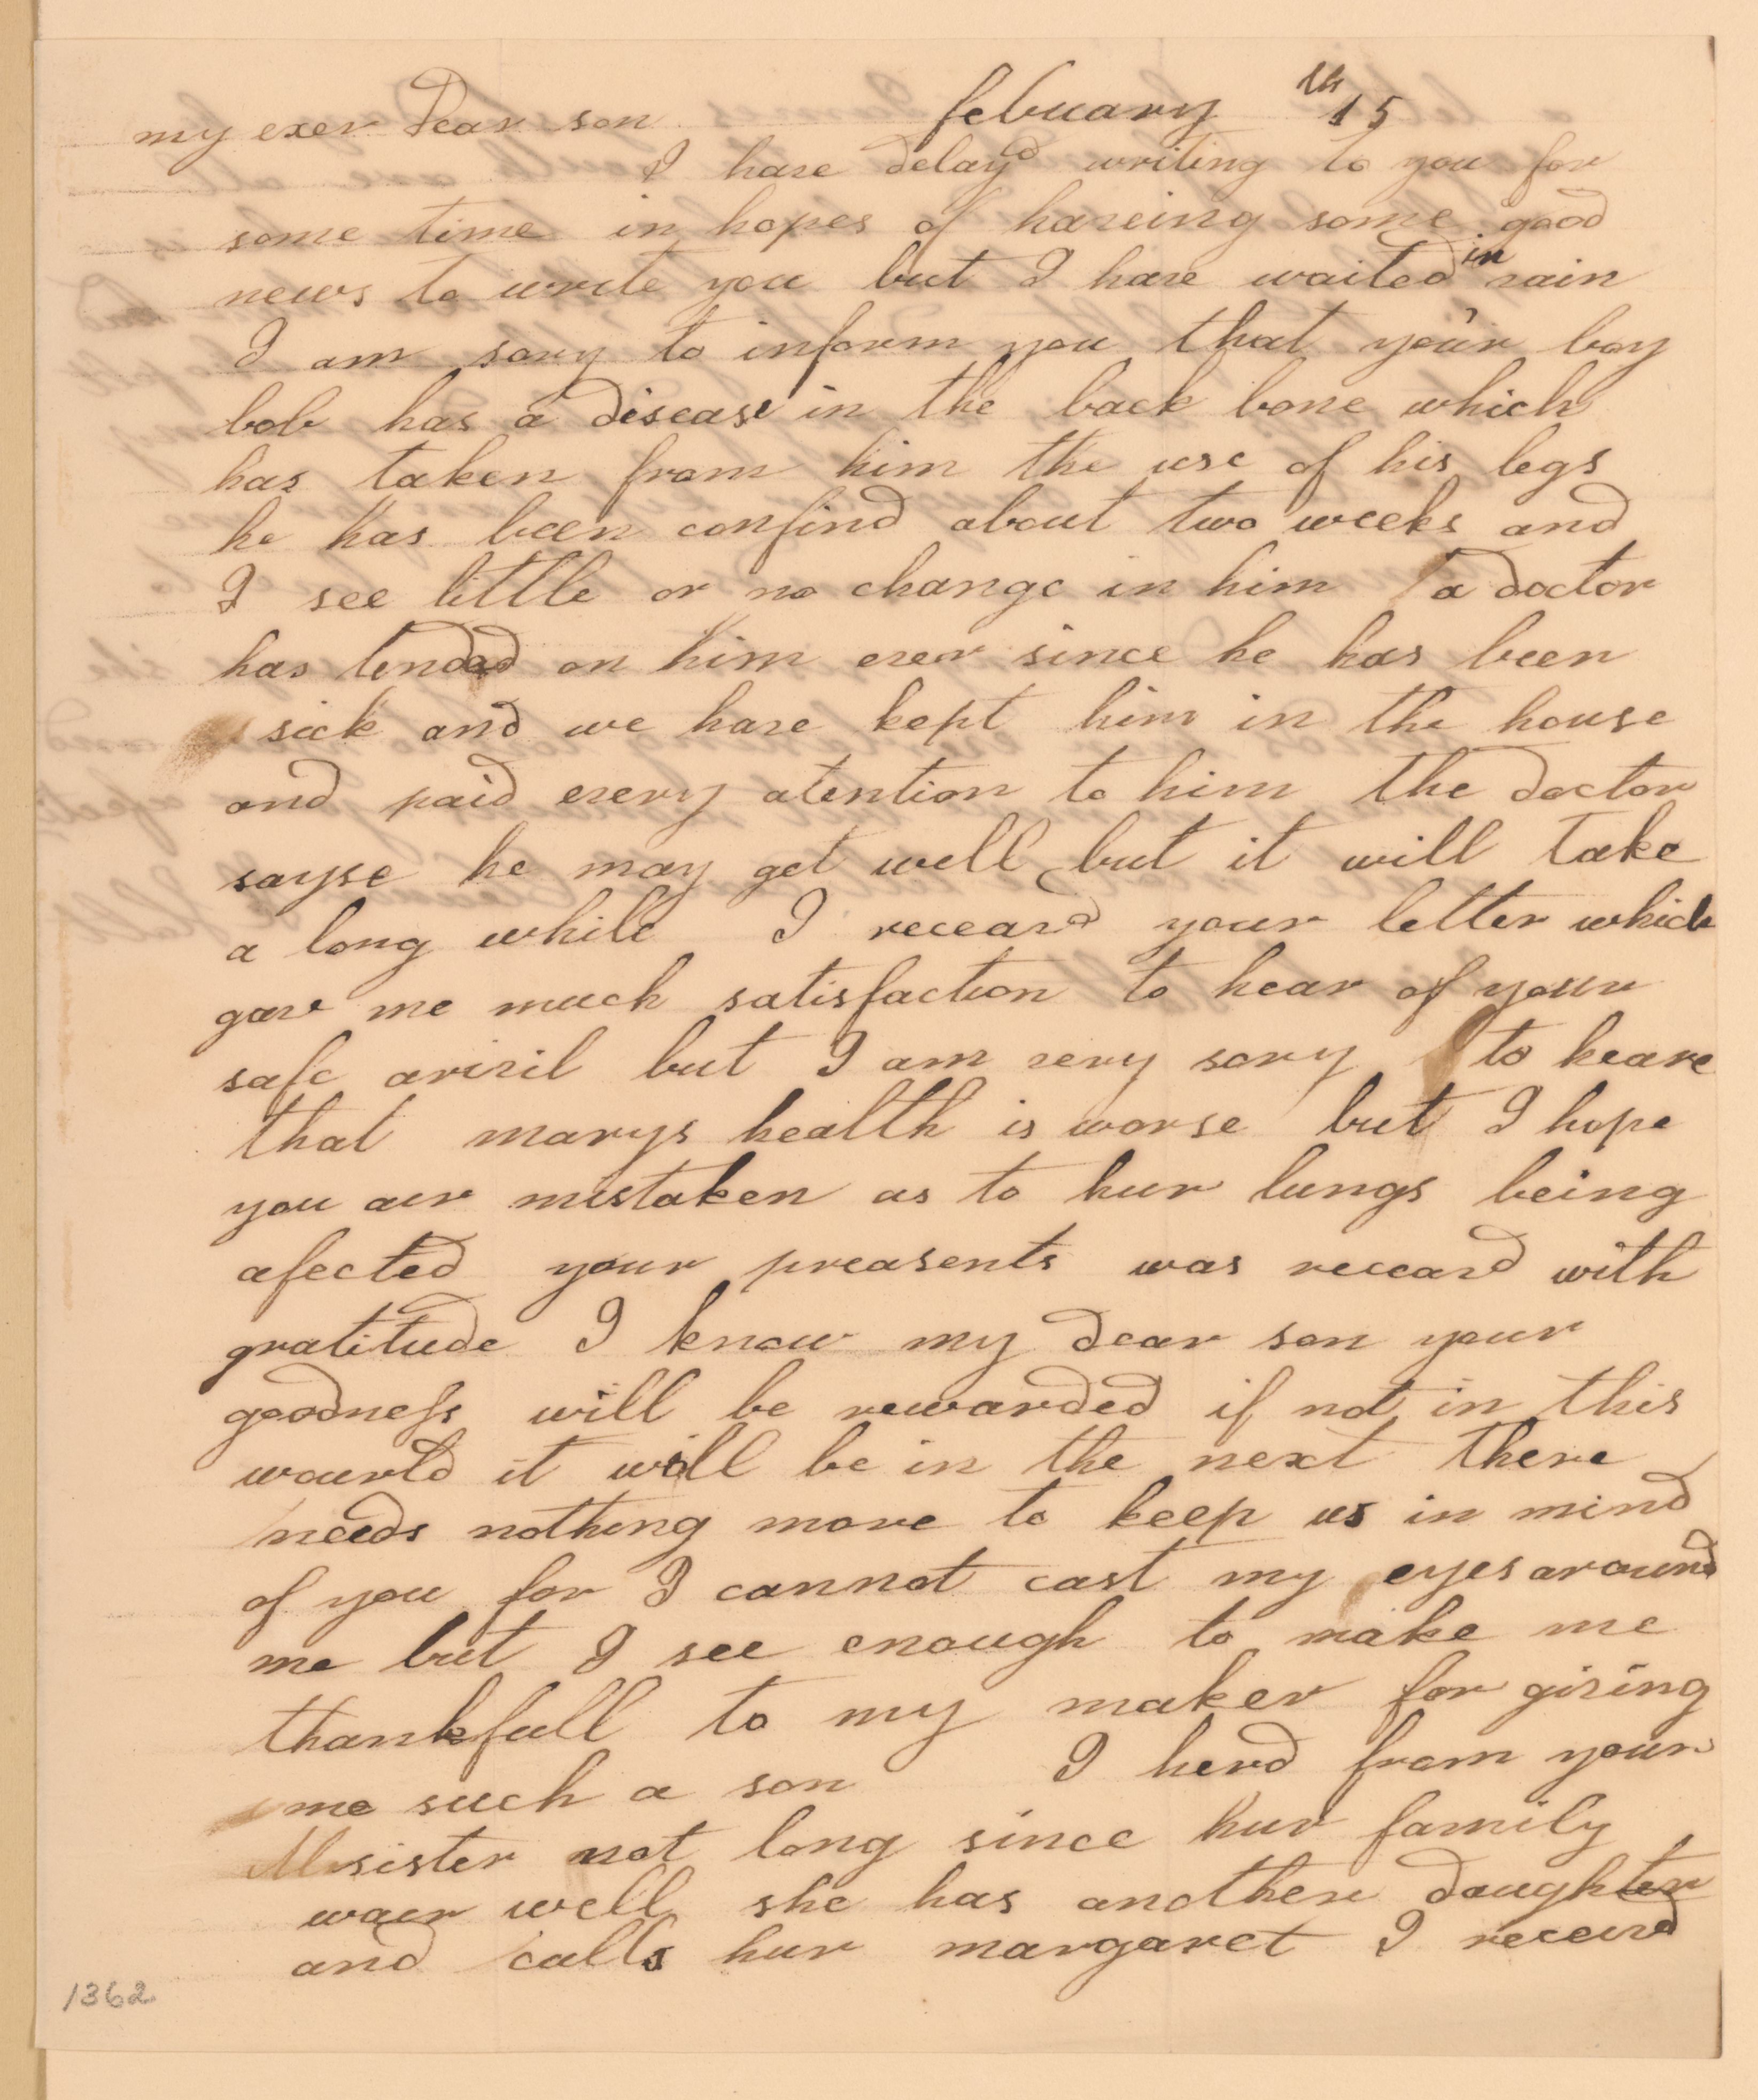 my ever Dear son february 15th
I have delayd writing to you for
some time in hopes of haveing some good
news to write you but I have waited in vain
I am sory to inform you that your boy
bob has a disease in the back bone which
has taken from him the use of his legs
he has been confind about two weeks and
I see little or no change in him a doctor
has tended on him ever since he has been
sick and we have kept him in the house
and paid every atention to him the doctor
sayse he may get well but it will take
a long while I receavd your letter which
gave me much satisfaction to hear of your
safe arivil but I am very sory to heare
that marys health is worse but I hope
you aer mistaken as to hur lungs being
afected your preasents was receavd with
gratitude I know my dear son your
goodness will be rewarded if not in this
wourld it will be in the next there
needs nothing more to keep us in mind
of you for I cannot cast my eyes around
me but I see enough to make me
thankfull to my maker for giving
me such a son I herd from your
sister not long since hur family
waer well she has another daughter
and calls hur margaret I receivd
1362